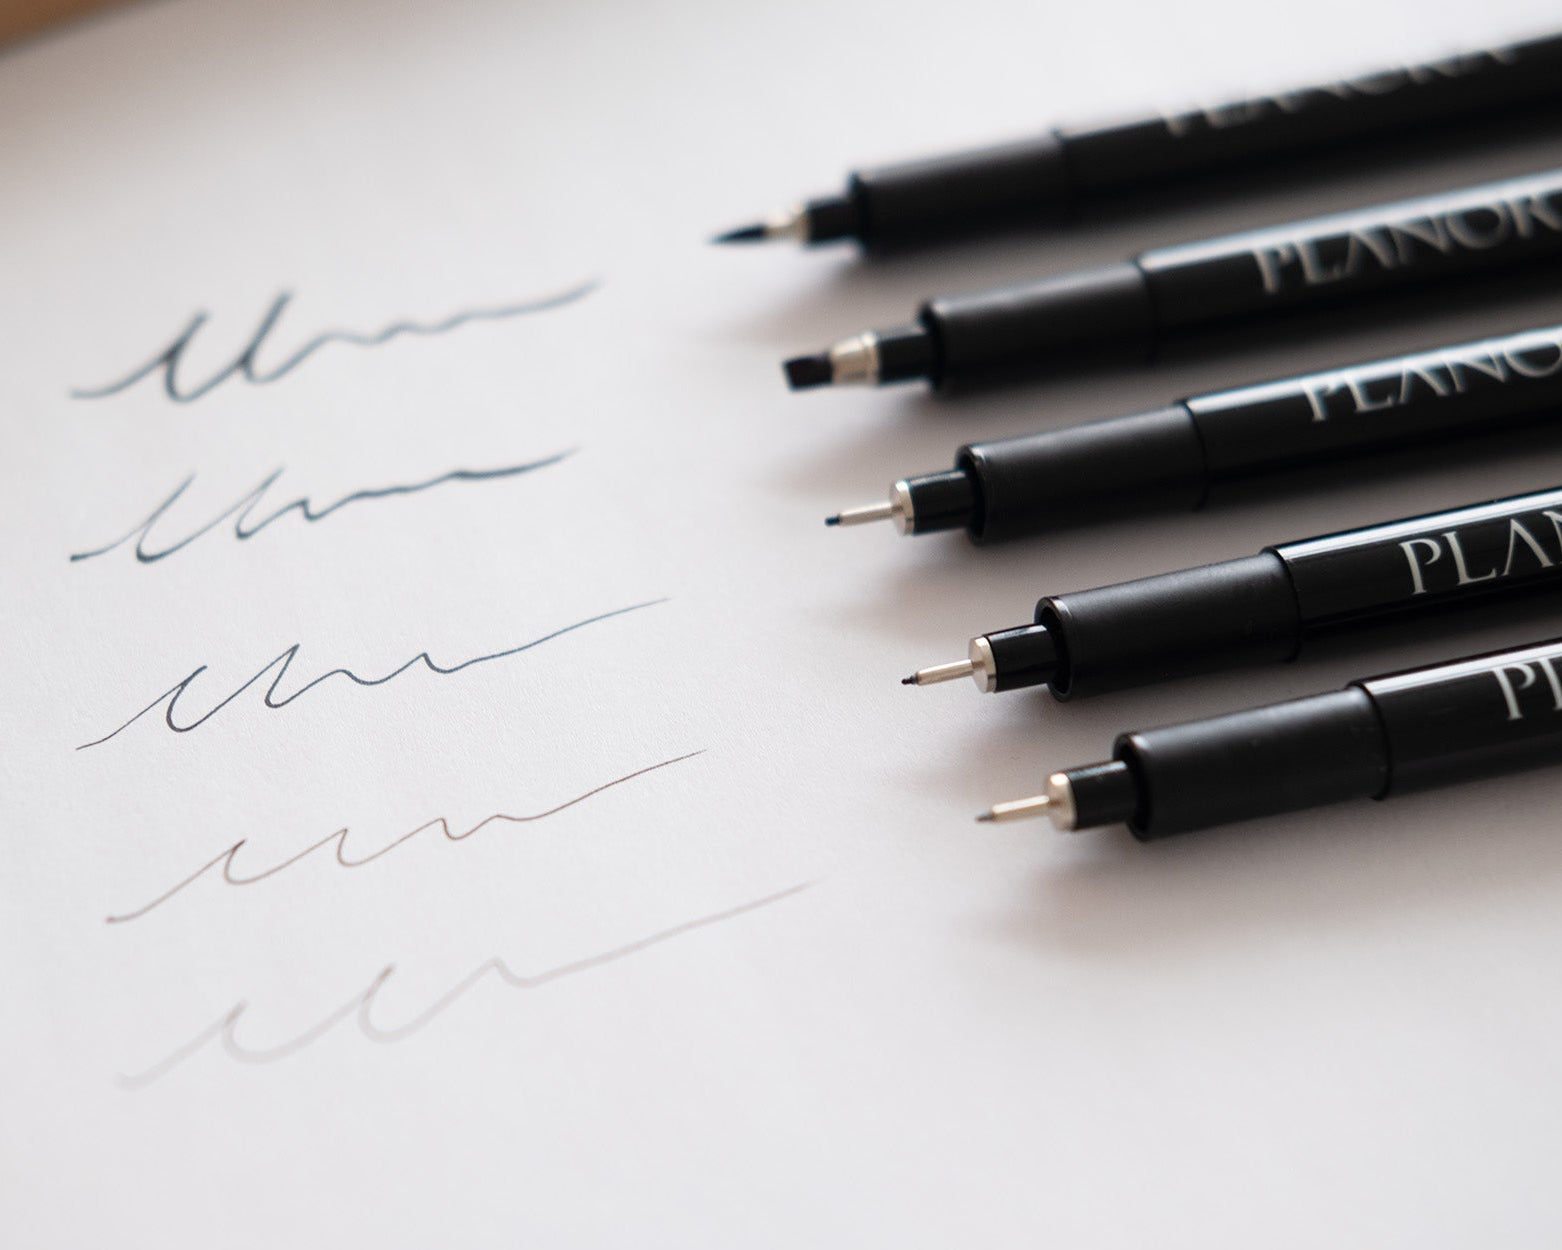 PLANORA
PLANOR
PLANO
PLAN
PL